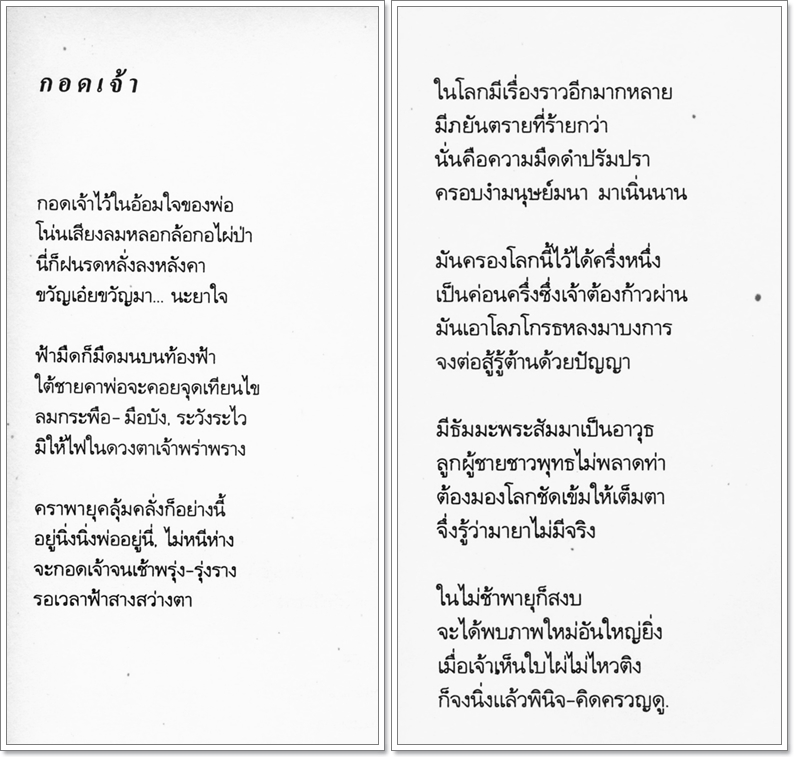 กอดเจ้า
กอดเจ้าไว้ในอ้อมใจของพ่อ
โน่นเสียงลมหลอกล้อกอไผ่ป่า
นี่ก็ฝนรดหลั่งลงหลังคา
ขวัญเอ๋ยขวัญมา... นะยาใจ
ฟ้ามืดก็มืดมนบนท้องฟ้า
ใต้ชายคาพ่อจะคอยจุดเทียนไข
ลมกระพือ-มือบัง, ระวังระไว
มิให้ไฟในดวงตาเจ้าพร่าพราง
คราพายุคลุ้มคลั่งก็อย่างนี้
อยู่นิ่งนิ่งพ่ออยู่นี่, ไม่หนีห่าง
จะกอดเจ้าจนเช้าพรุ่ง-รุ่งราง
รอเวลาฟ้าสางสว่างตา
ในโลกมีเรื่องราวอีกมากหลาย
มีภยันตรายที่ร้ายกว่า
นั่นคือความมืดดำปรัมปรา
ครอบงำมนุษย์มนา มาเนิ่นนาน
มันครองโลกนี้ไว้ได้ครึ่งหนึ่ง
เป็นค่อนครึ่งซึ่งเจ้าต้องก้าวผ่าน
มันเอาโลภโกรธหลงมาบงการ
จงต่อสู้รู้ต้านด้วยปัญญา
มีธัมมะพระสัมมาเป็นอาวุธ
ลูกผู้ชายชาวพุทธไม่พลาดท่า
ต้องมองโลกชัดเข้มให้เต็มตา
จึ่งรู้ว่ามายาไม่มีจริง
ในไม่ช้าพายุก็สงบ
จะได้พบภาพใหม่อันใหญ่ยิ่ง
เมื่อเจ้าเห็นใบไผ่ไม่ไหวติง
ก็จงนิ่งแล้วพินิจ-คิดครวญดู.